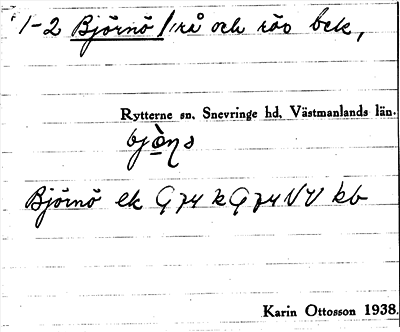 1-2 Björnö /rå och rös bek,
Rytterne sn. Snevringe hd. Västmanlands län.
Björnö ek G 74 k G 74 NV kb
Karin Ottosson 1938.